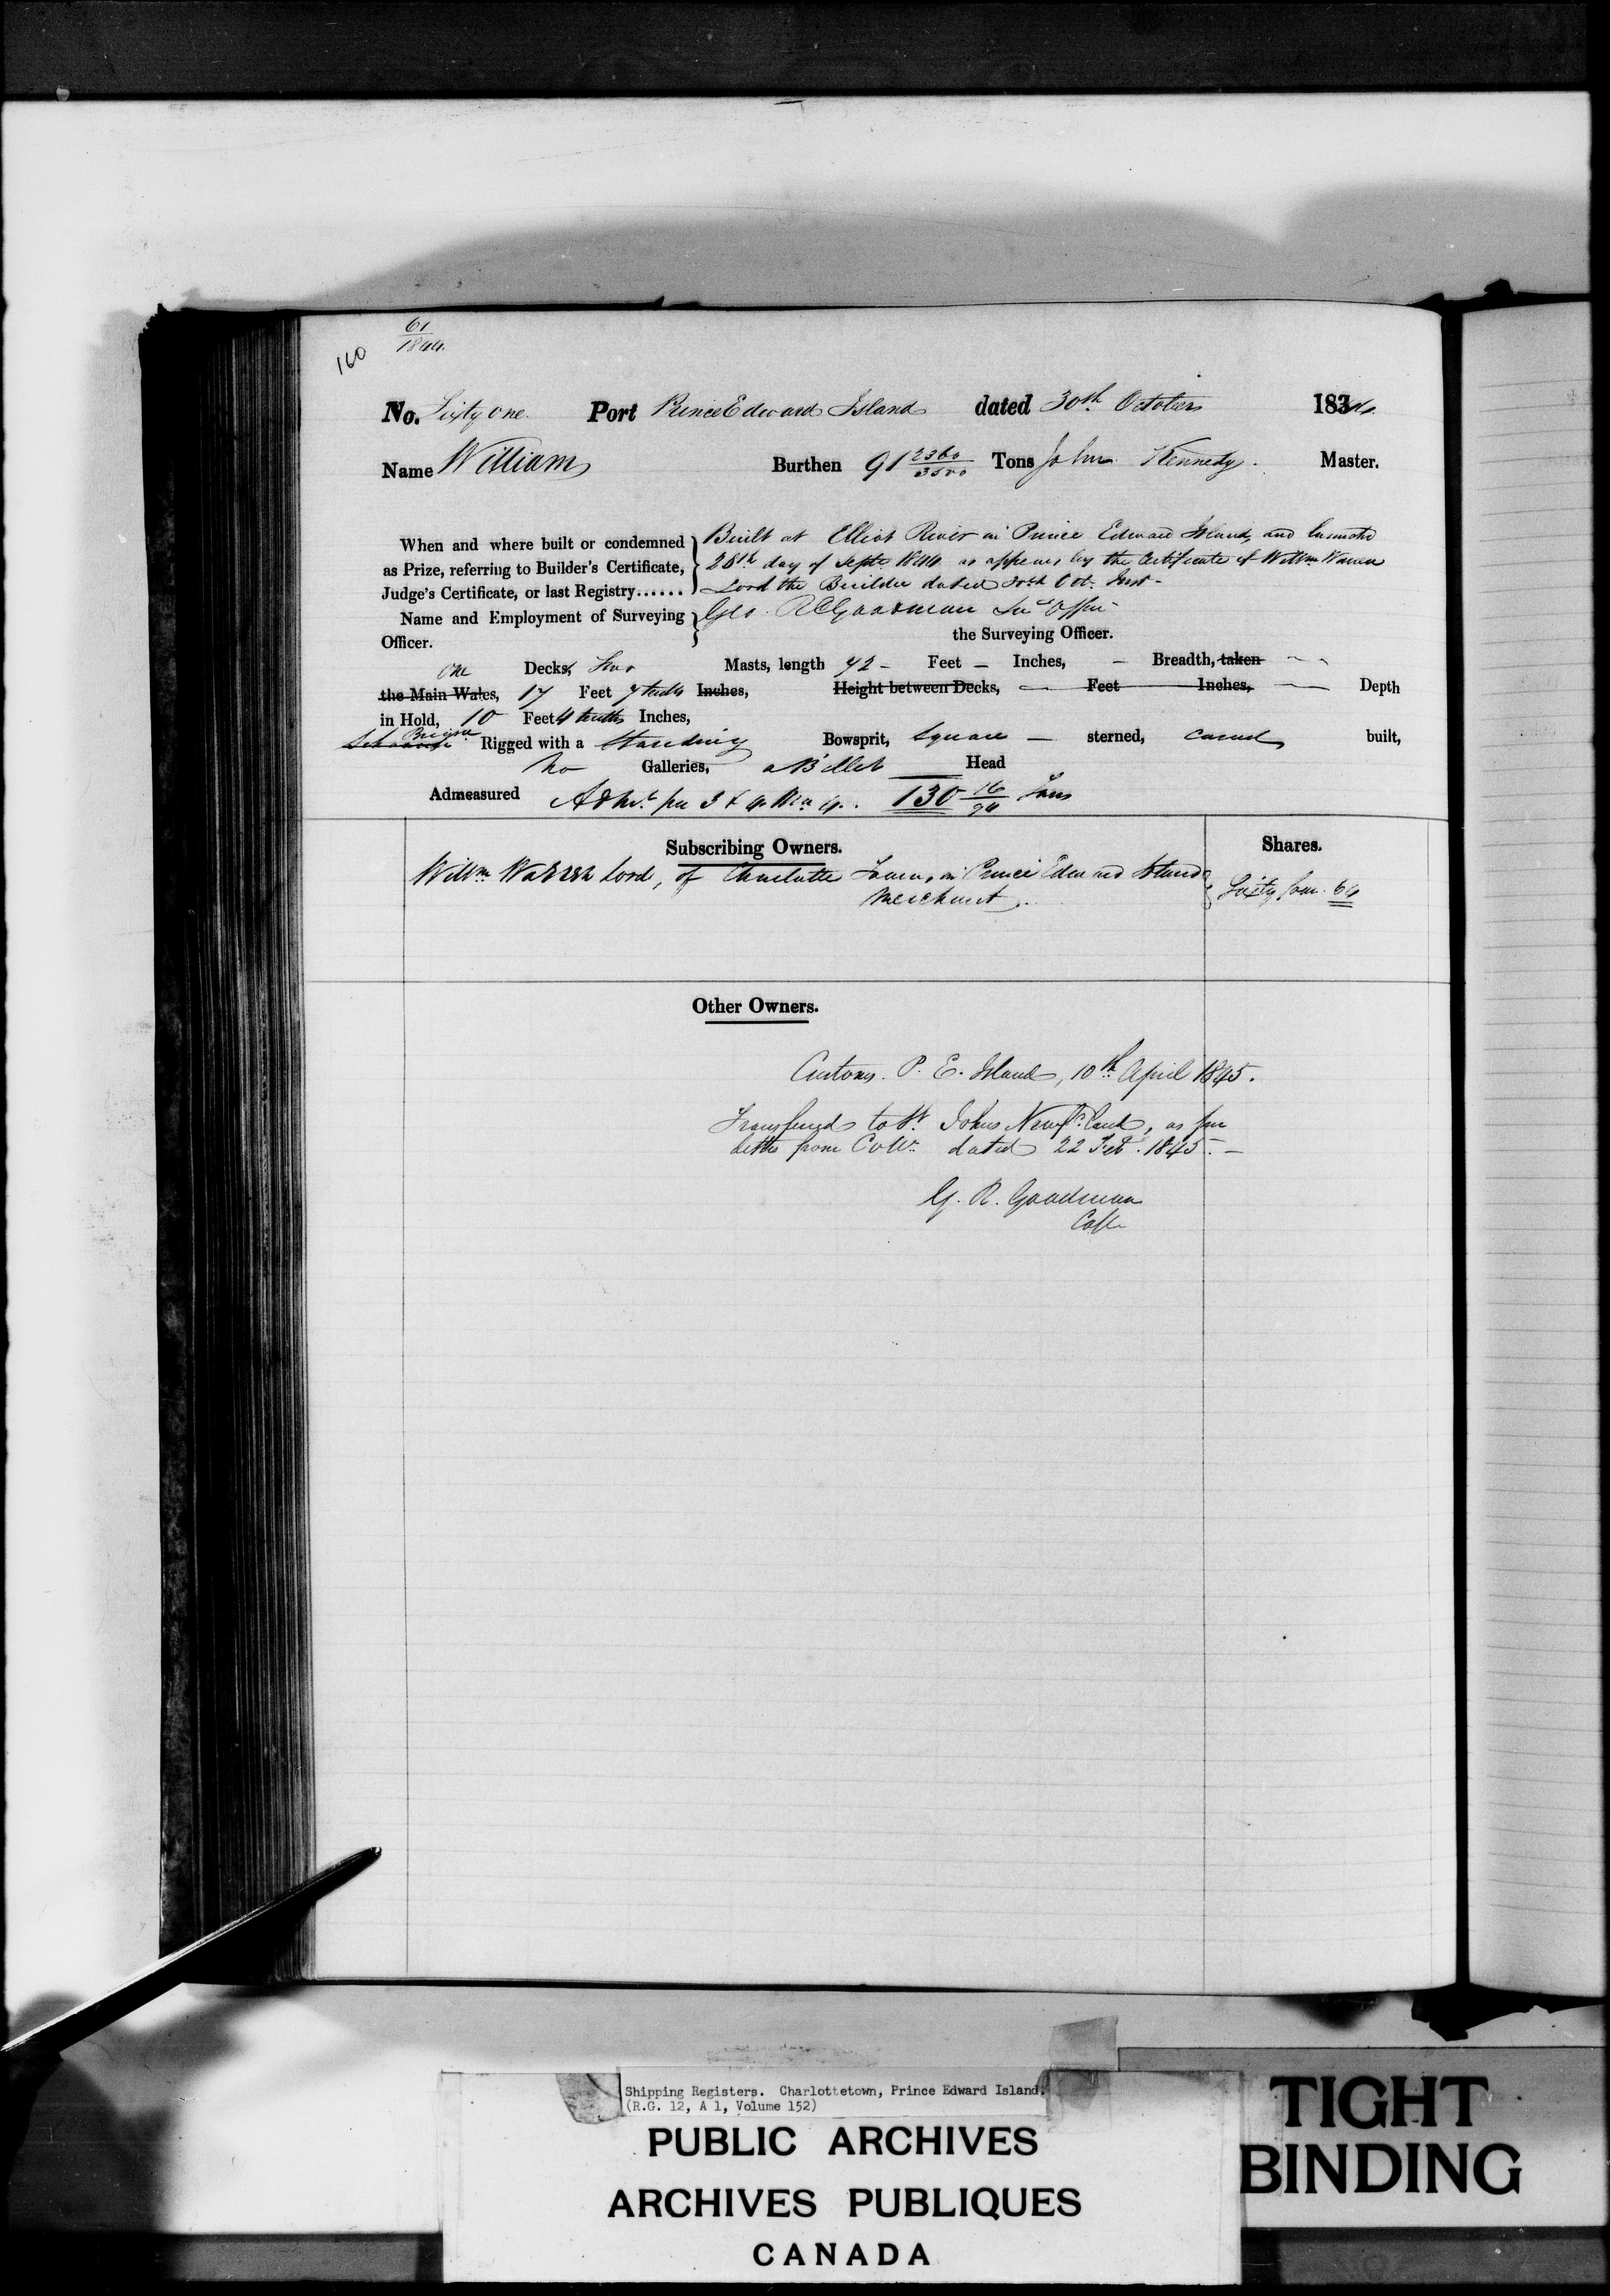 61
1844.
160
No. Sixty One Port Prince Edward Island dated 30th October 1844
Name William Burthen 91 2360/3500 Tons John Kennedy. Master.
When and where built or condemned as Prize, referring to Builder's Certificate, Judge's Certificate, or last Registry......
Built at Elliot River in Prince Edward Island, and launched
28th day of Septr 1844 as appears by the Certificate of Willm Warren
Lord the Builder dated 30th Oct. Inst -
Name and Employment of Surveying Officer.
Geo. R Goodman
the Surveying Officer.
one Decks, Two Masts, length 72 - Feet - Inches, - Breadth, taken
the Main Wales, 17 Feet 7 tenths Inches, Height between Decks, — Feet Inches, — Depth
in Hold, 10 Feet 4 tenths Inches,
Schooner Brigne Rigged with a Standing Bowsprit, Square — sterned, carvel built,
No Galleries, a Billet Head
Admeasured per 3 & 4 130 16/94 Tons
Subscribing Owners. Shares.
Willm Warren Lord, of Charlotte Town, in Prince Edward Island
Merchant. Sixty four. 64
Other Owners.
Customs. P. E. Island, 10th April 1845.
Transferred to St. Johns Newfd. land, as per
letter from Collr. dated 22 Feb. 1845. -
G. R. Goodman
Collr
Shipping Registers. Charlottetown, Prince Edward Island.
(R.G. 12, A 1, Volume 152)
PUBLIC ARCHIVES
ARCHIVES PUBLIQUES
CANADA
TIGHT
BINDING